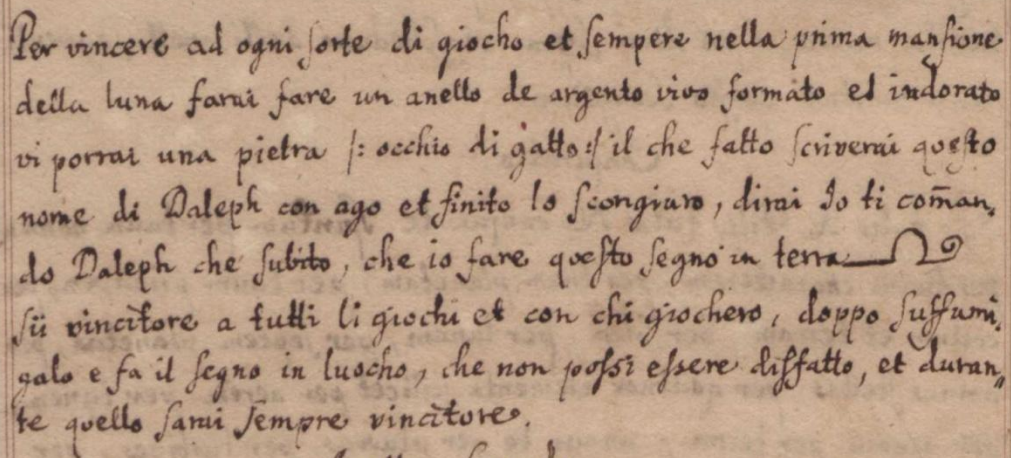 Per vincere ad ogni sorte di giocho et sempere nella prima mansione
della luna farai fare un anello de argento vivo formato et indorato
vi porrai una pietra /: occhio di gatto :/ il che fatto scriverai questo
nome di Daleph con ago et finito lo scongiuro, dirai Io ti com̄an,
do Daleph che subito, che io fare questo segno in terra
sii vincitore a tutti li giochi et con chi giochero, doppo suffumi,
galo e fa il segno in luocho, che non possi essere disfatto, et duran,,
te quello sarai sempre vincitore.